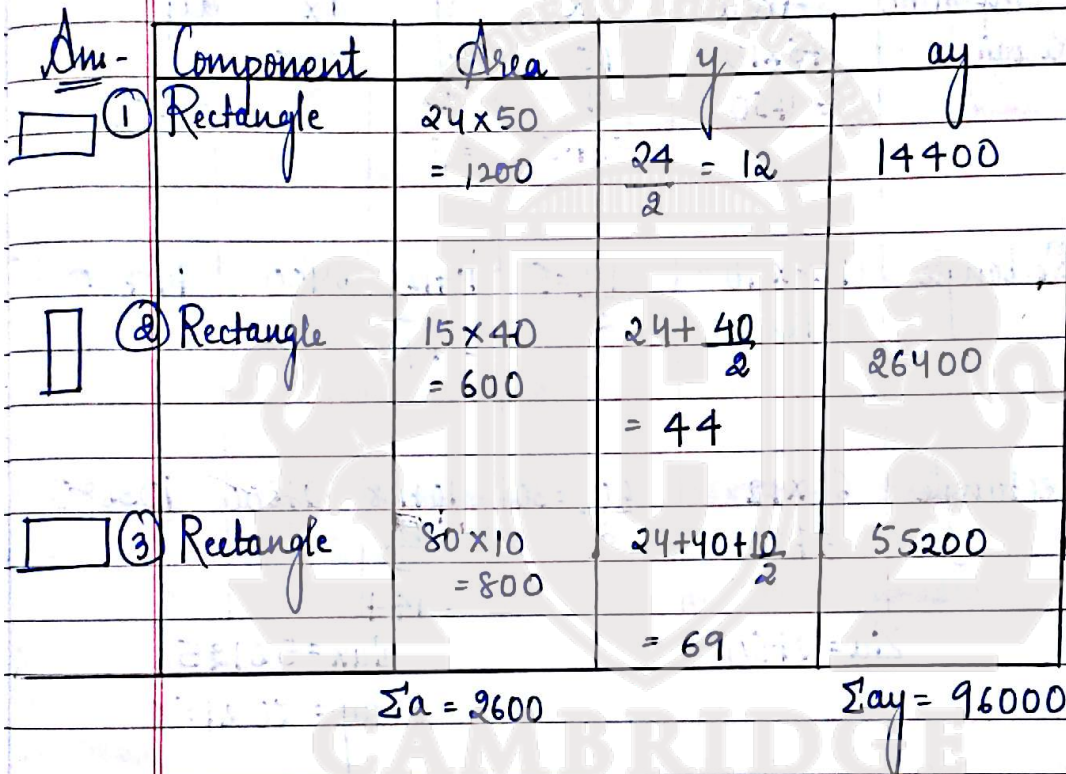 Ans- Component Area y ay
① Rectangle 24 x 50
= 1200 24/2 = 12 14400
② Rectangle 15 x 40 24 + 40/2
= 600 26400
= 44
③ Rectangle 80 x 10 24+40+10/2 55200
= 800
= 69
Σa = 2600 Σay = 96000
CAMBRIDGE